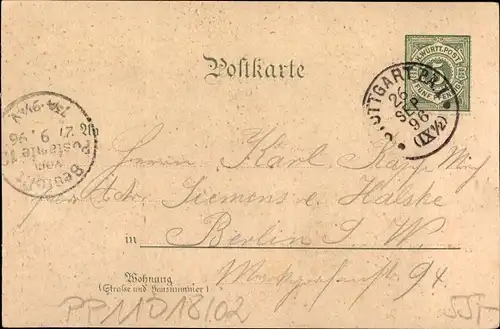 K. WÜRTT. POST
5
FÜNF PFENNIG
Postkarte
STUTTGART P.A.I.
26
SEP
96
(IX½)
Bestellt
vom
Postamte
27 9. 96
7¼-9½V
An
Herrn Karl Kapp
per Adr Siemens & Halske
in Berlin S. W.
Wohnung
(Straße und Hausnummer)
Markgrafenstr 94.
PP11D18/02
55,-